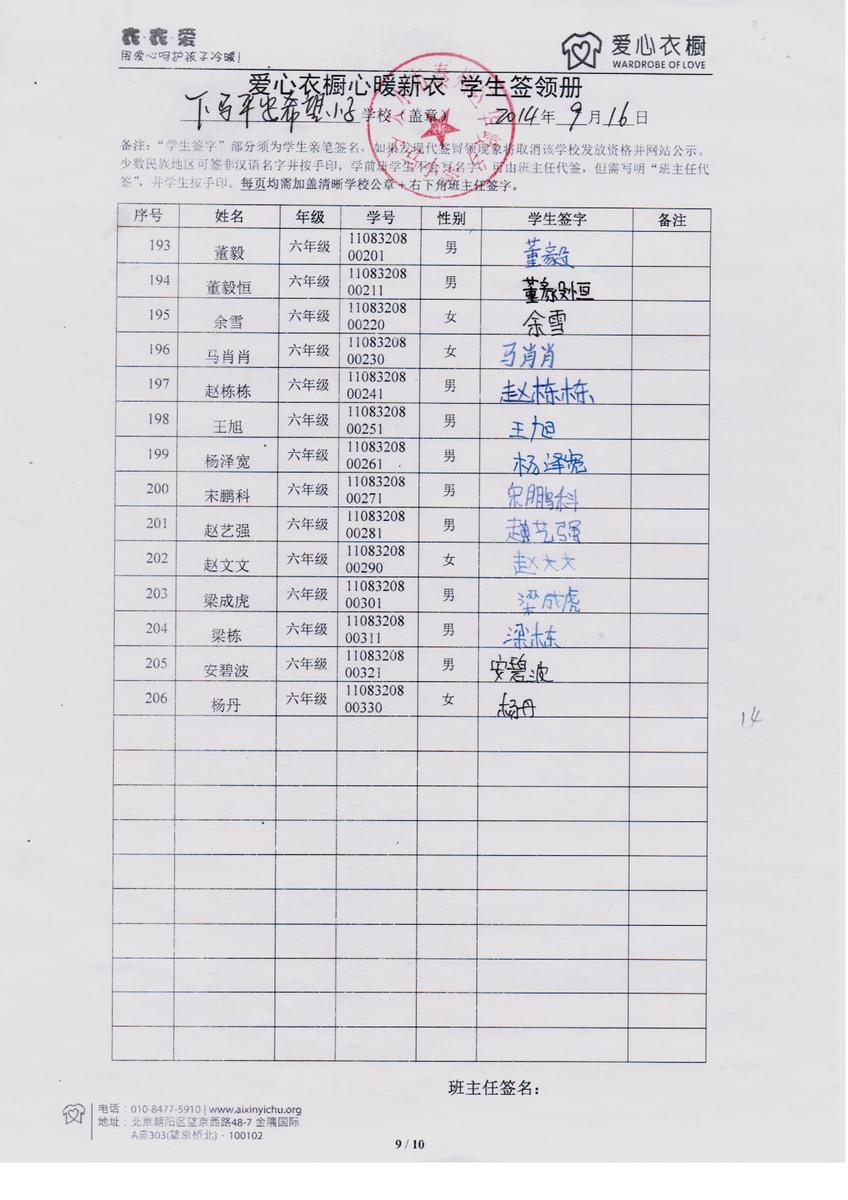 衣·衣·爱
用爱心呵护孩子冷暖!
爱心衣橱
WARDROBE OF LOVE
爱心衣橱心暖新衣 学生签领册
下马平安希望小学 学校（盖章） 2014年 9月16日
备注：“学生签字”部分须为学生亲笔签名，如果发现代签冒领现象将取消该学校发放资格并网站公示。
少数民族地区可签非汉语名字并按手印，学前班学生不会写名字，可由班主任代签，但需写明“班主任代
签”，并学生按手印。每页均需加盖清晰学校公章+右下角班主任签字。
序号 姓名 年级 学号 性别 学生签字 备注
193 董毅 六年级 11083208 00201 男 董毅
194 董毅恒 六年级 11083208 00211 男 董毅恒
195 余雪 六年级 11083208 00220 女 余雪
196 马肖肖 六年级 11083208 00230 女 马肖肖
197 赵栋栋 六年级 11083208 00241 男 赵栋栋
198 王旭 六年级 11083208 00251 男 王旭
199 杨泽宽 六年级 11083208 00261 男 杨泽宽
200 宋鹏科 六年级 11083208 00271 男 宋鹏科
201 赵艺强 六年级 11083208 00281 男 赵艺强
202 赵文文 六年级 11083208 00290 女 赵文文
203 梁成虎 六年级 11083208 00301 男 梁成虎
204 梁栋 六年级 11083208 00311 男 梁栋
205 安碧波 六年级 11083208 00321 男 安碧波
206 杨丹 六年级 11083208 00330 女 杨丹
14
班主任签名：
电话：010-8477-5910 | www.aixinyichu.org
地址：北京朝阳区望京西路48-7 金隅国际
A座303(望京桥北)·100102
9 / 10